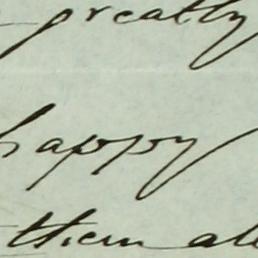 greatly
happy
them all